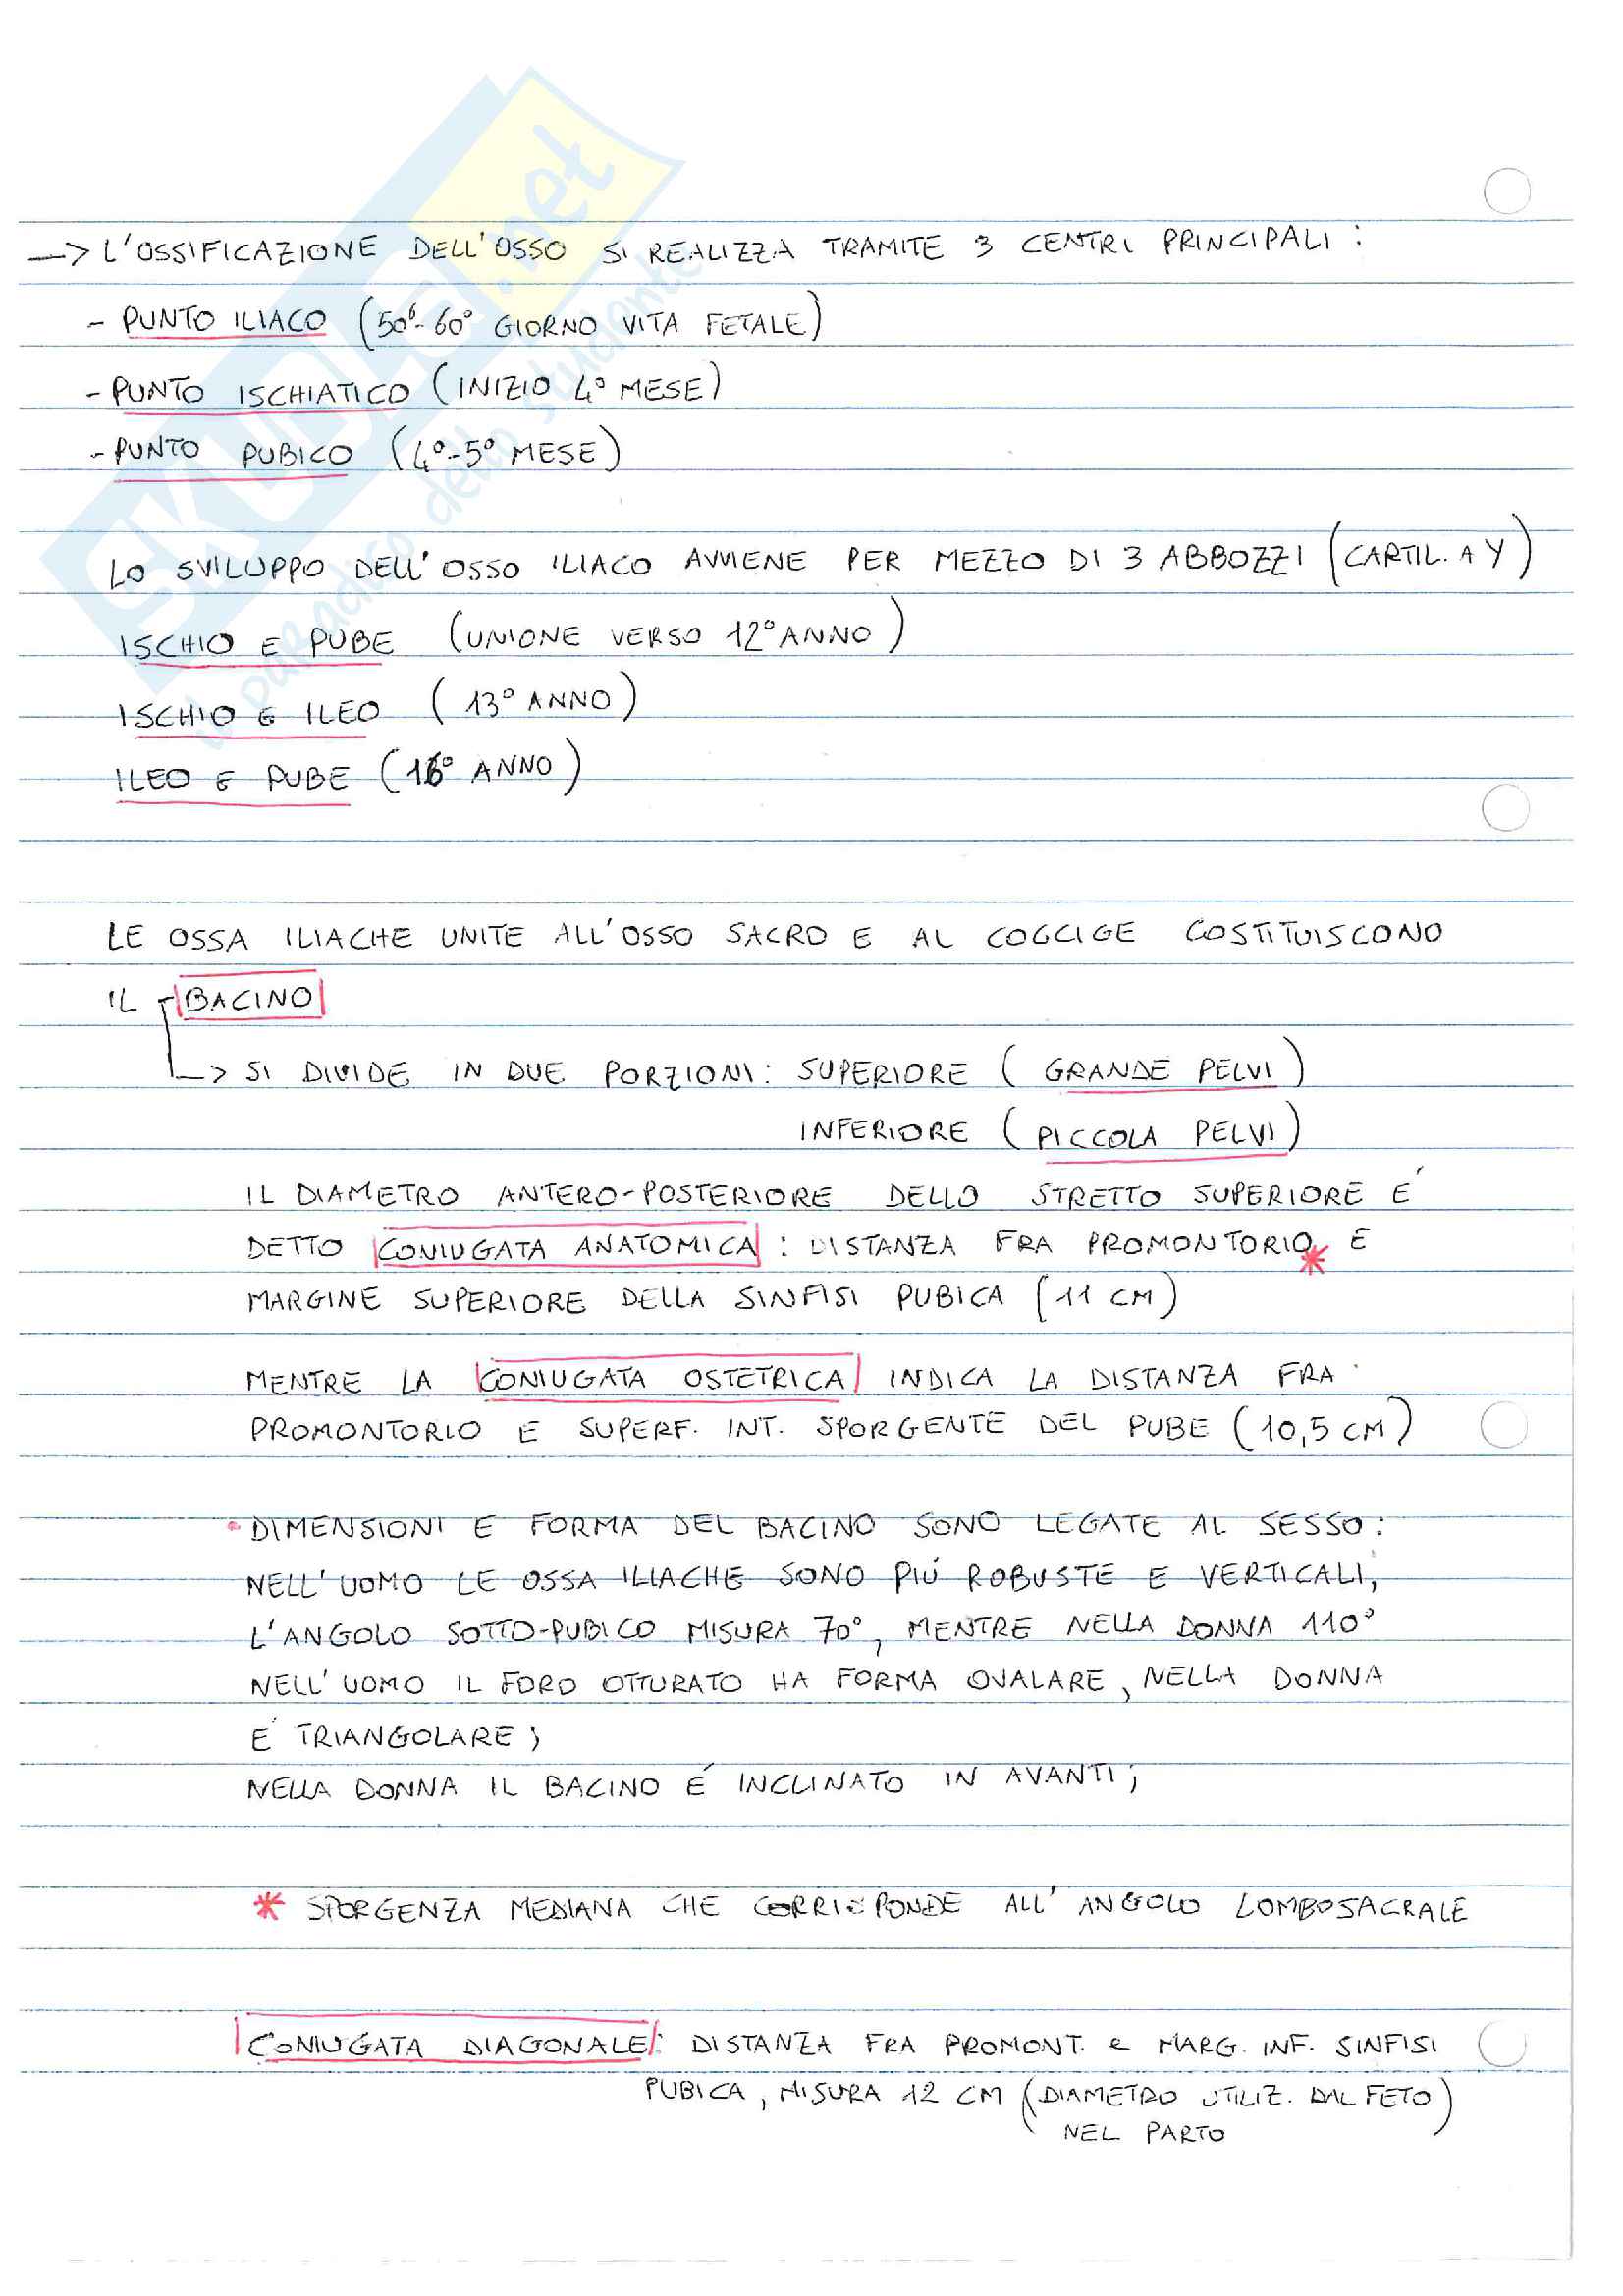 SKUOLA.net
il paradiso dello studente
—> L'OSSIFICAZIONE DELL'OSSO SI REALIZZA TRAMITE 3 CENTRI PRINCIPALI :
- PUNTO ILIACO (50°-60° GIORNO VITA FETALE)
- PUNTO ISCHIATICO (INIZIO 4° MESE)
- PUNTO PUBICO (4°-5° MESE)
LO SVILUPPO DELL'OSSO ILIACO AVVIENE PER MEZZO DI 3 ABBOZZI (CARTIL. A Y)
ISCHIO E PUBE (UNIONE VERSO 12° ANNO)
ISCHIO E ILEO (13° ANNO)
ILEO E PUBE (16° ANNO)
LE OSSA ILIACHE UNITE ALL'OSSO SACRO E AL COCCIGE COSTITUISCONO
IL BACINO
—> SI DIVIDE IN DUE PORZIONI: SUPERIORE (GRANDE PELVI)
INFERIORE (PICCOLA PELVI)
IL DIAMETRO ANTERO-POSTERIORE DELLO STRETTO SUPERIORE E'
DETTO CONIUGATA ANATOMICA : DISTANZA FRA PROMONTORIO* E
MARGINE SUPERIORE DELLA SINFISI PUBICA (11 CM)
MENTRE LA CONIUGATA OSTETRICA INDICA LA DISTANZA FRA
PROMONTORIO E SUPERF. INT. SPORGENTE DEL PUBE (10,5 CM)
• DIMENSIONI E FORMA DEL BACINO SONO LEGATE AL SESSO:
NELL'UOMO LE OSSA ILIACHE SONO PIÙ ROBUSTE E VERTICALI,
L'ANGOLO SOTTO-PUBICO MISURA 70°, MENTRE NELLA DONNA 110°
NELL'UOMO IL FORO OTTURATO HA FORMA OVALARE, NELLA DONNA
E' TRIANGOLARE;
NELLA DONNA IL BACINO É INCLINATO IN AVANTI;
* SPORGENZA MEDIANA CHE CORRISPONDE ALL'ANGOLO LOMBOSACRALE
CONIUGATA DIAGONALE: DISTANZA FRA PROMONT. e MARG. INF. SINFISI
PUBICA, MISURA 12 CM (DIAMETRO UTILIZ. DAL FETO)
NEL PARTO